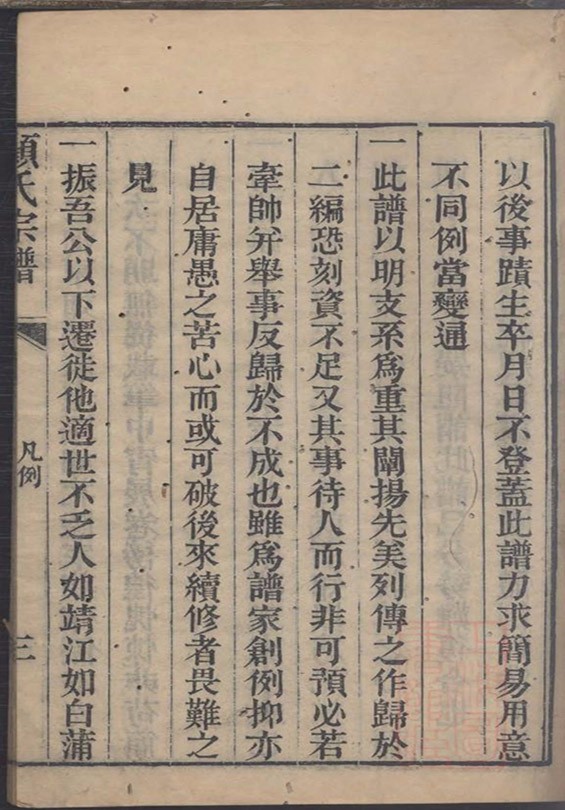 以後事蹟生卒月日不登蓋此譜力求簡易用意
不同例當變通
一此譜以明支系爲重其闡揚先美列傳之作歸於
二編恐刻資不足又其事待人而行非可預必若
牽帥幷舉事反歸於不成也雖爲譜家創例抑亦
自居庸愚之苦心而或可破後來續修者畏難之
見
一振吾公以下遷徙他適世不乏人如靖江如白蒲
顧氏宗譜
凡例
三